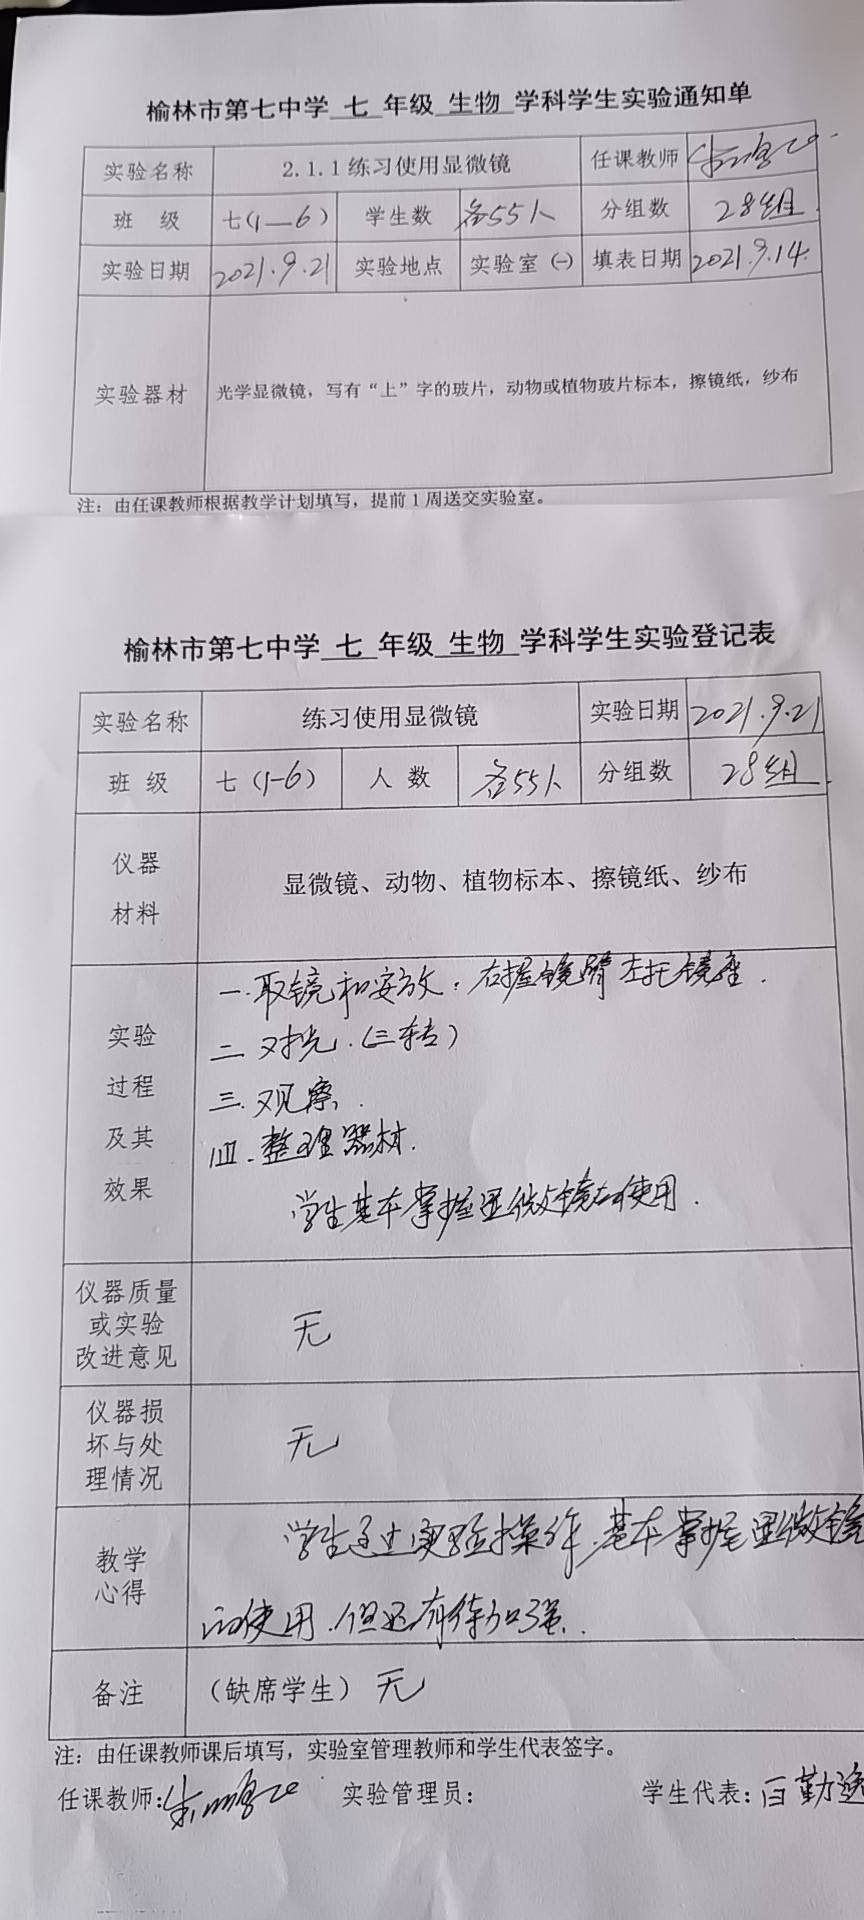 榆林市第七中学 七 年级 生物 学科学生实验通知单
实验名称 2.1.1练习使用显微镜 任课教师
班 级 七(1—6) 学生数 各55人 分组数 28组
实验日期 2021.9.21 实验地点 实验室(一) 填表日期 2021.9.14.
实验器材 光学显微镜，写有“上”字的玻片，动物或植物玻片标本，擦镜纸，纱布
注：由任课教师根据教学计划填写，提前1周送交实验室。
榆林市第七中学 七 年级 生物 学科学生实验登记表
实验名称 练习使用显微镜 实验日期 2021.9.21
班 级 七(1-6) 人 数 各55人 分组数 28组.
仪器
材料
显微镜、动物、植物标本、擦镜纸、纱布
实验
过程
及其
效果
一.取镜和安放：右握镜臂左托镜座.
二 对光.(三转)
三.观察.
四.整理器材.
学生基本掌握显微镜的使用.
仪器质量
或实验
改进意见
无
仪器损
坏与处
理情况
无
教学
心得
学生通过实验操作,基本掌握显微镜
的使用.但还有待加强.
备注 （缺席学生）无
注：由任课教师课后填写，实验室管理教师和学生代表签字。
任课教师: 实验管理员： 学生代表：白勤逸